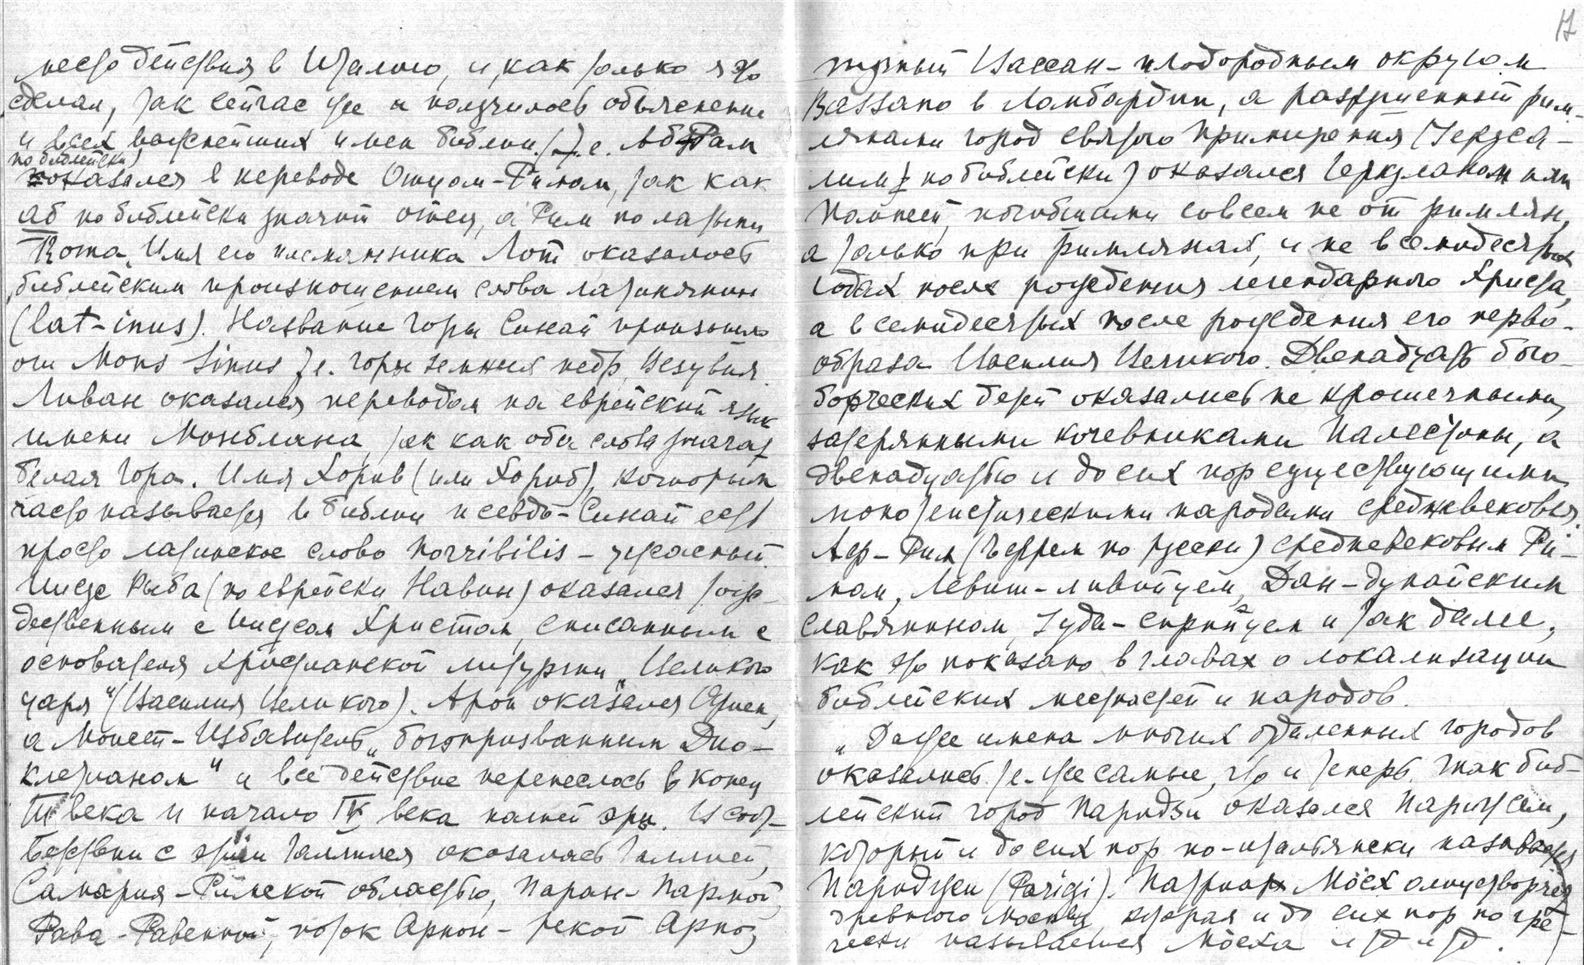 место действия в Италию, и, как только я это
сделал, так сейчас же и получилось объяснение
и всех важнейших имен библии (т. е. Аб-Рам
по библейски)
оказался в переводе Отцом-Римом, так как
аб по библейски значит отец, а Рим по латыни
Roma. Имя его племянника Лот оказалось
библейским произношением слова латинянин
(lat-inus). Название горы Синай произошло
от Mons Sinus т. е. горы земных недр, Везувия.
Ливан оказался переводом на еврейский язык
имени Монблана, так как оба слова значат
белая гора. Имя Хорив (или Хориб), которым
часто называется в библии псевдо-Синай есть
просто латинское слово horribilis - ужасный.
Иисус Рыба (по еврейски Навин) оказался тож-
дественным с Иисусом Христом, списанным с
основателя христианской литургии "Великого
царя" (Василия Великого). Арон оказался Арием,
а Моисей-Избавитель "богопризванным Дио-
клетианом" и всё действие перенеслось в конец
III века и начало IV века нашей эры. В соот-
ветствии с этим Галилея оказалась Галлией,
Самария-Римской областью, Паран-Пармой,
Рава-Равенной, поток Арнон - рекой Арно,
17
тучный Вассан - плодородным округом
Bassano в Ломбардии, а разрушенный рим-
лянами город святого примирения (Иеруса-
лим по библейски) оказался Геркуланом или
Помпеей, погибшими совсем не от римлян,
а только при римлянах, и не в семидесятых
годах после рождения легендарного Христа,
а в семидесятых после рождения его перво-
образа Василия Великого. Двенадцать бого-
борческих детей оказались не крошечными,
затерянными кочевниками Палестины, а
двенадцатью и до сих пор существующими
монотеистическими народами средневековья.
Аф-Рим (Ефрем по русски) средневековым Ри-
мом, Левит-ливийцем, Дан-дунайским
славянином, Иуда-сирийцем и так далее,
как это показано в главах о локализации
библейских местностей и народов.
"Даже имена многих отдаленных городов
оказались те же самые, что и теперь. Так биб-
лейский город Паридзи оказался Парижем,
который и до сих пор по-итальянски называется
Паридзи (Parigi). Патриарх Мосх олицетворяет
древнюю Москву, которая и до сих пор по гре-
чески называется Мосха и т.д и т.д.